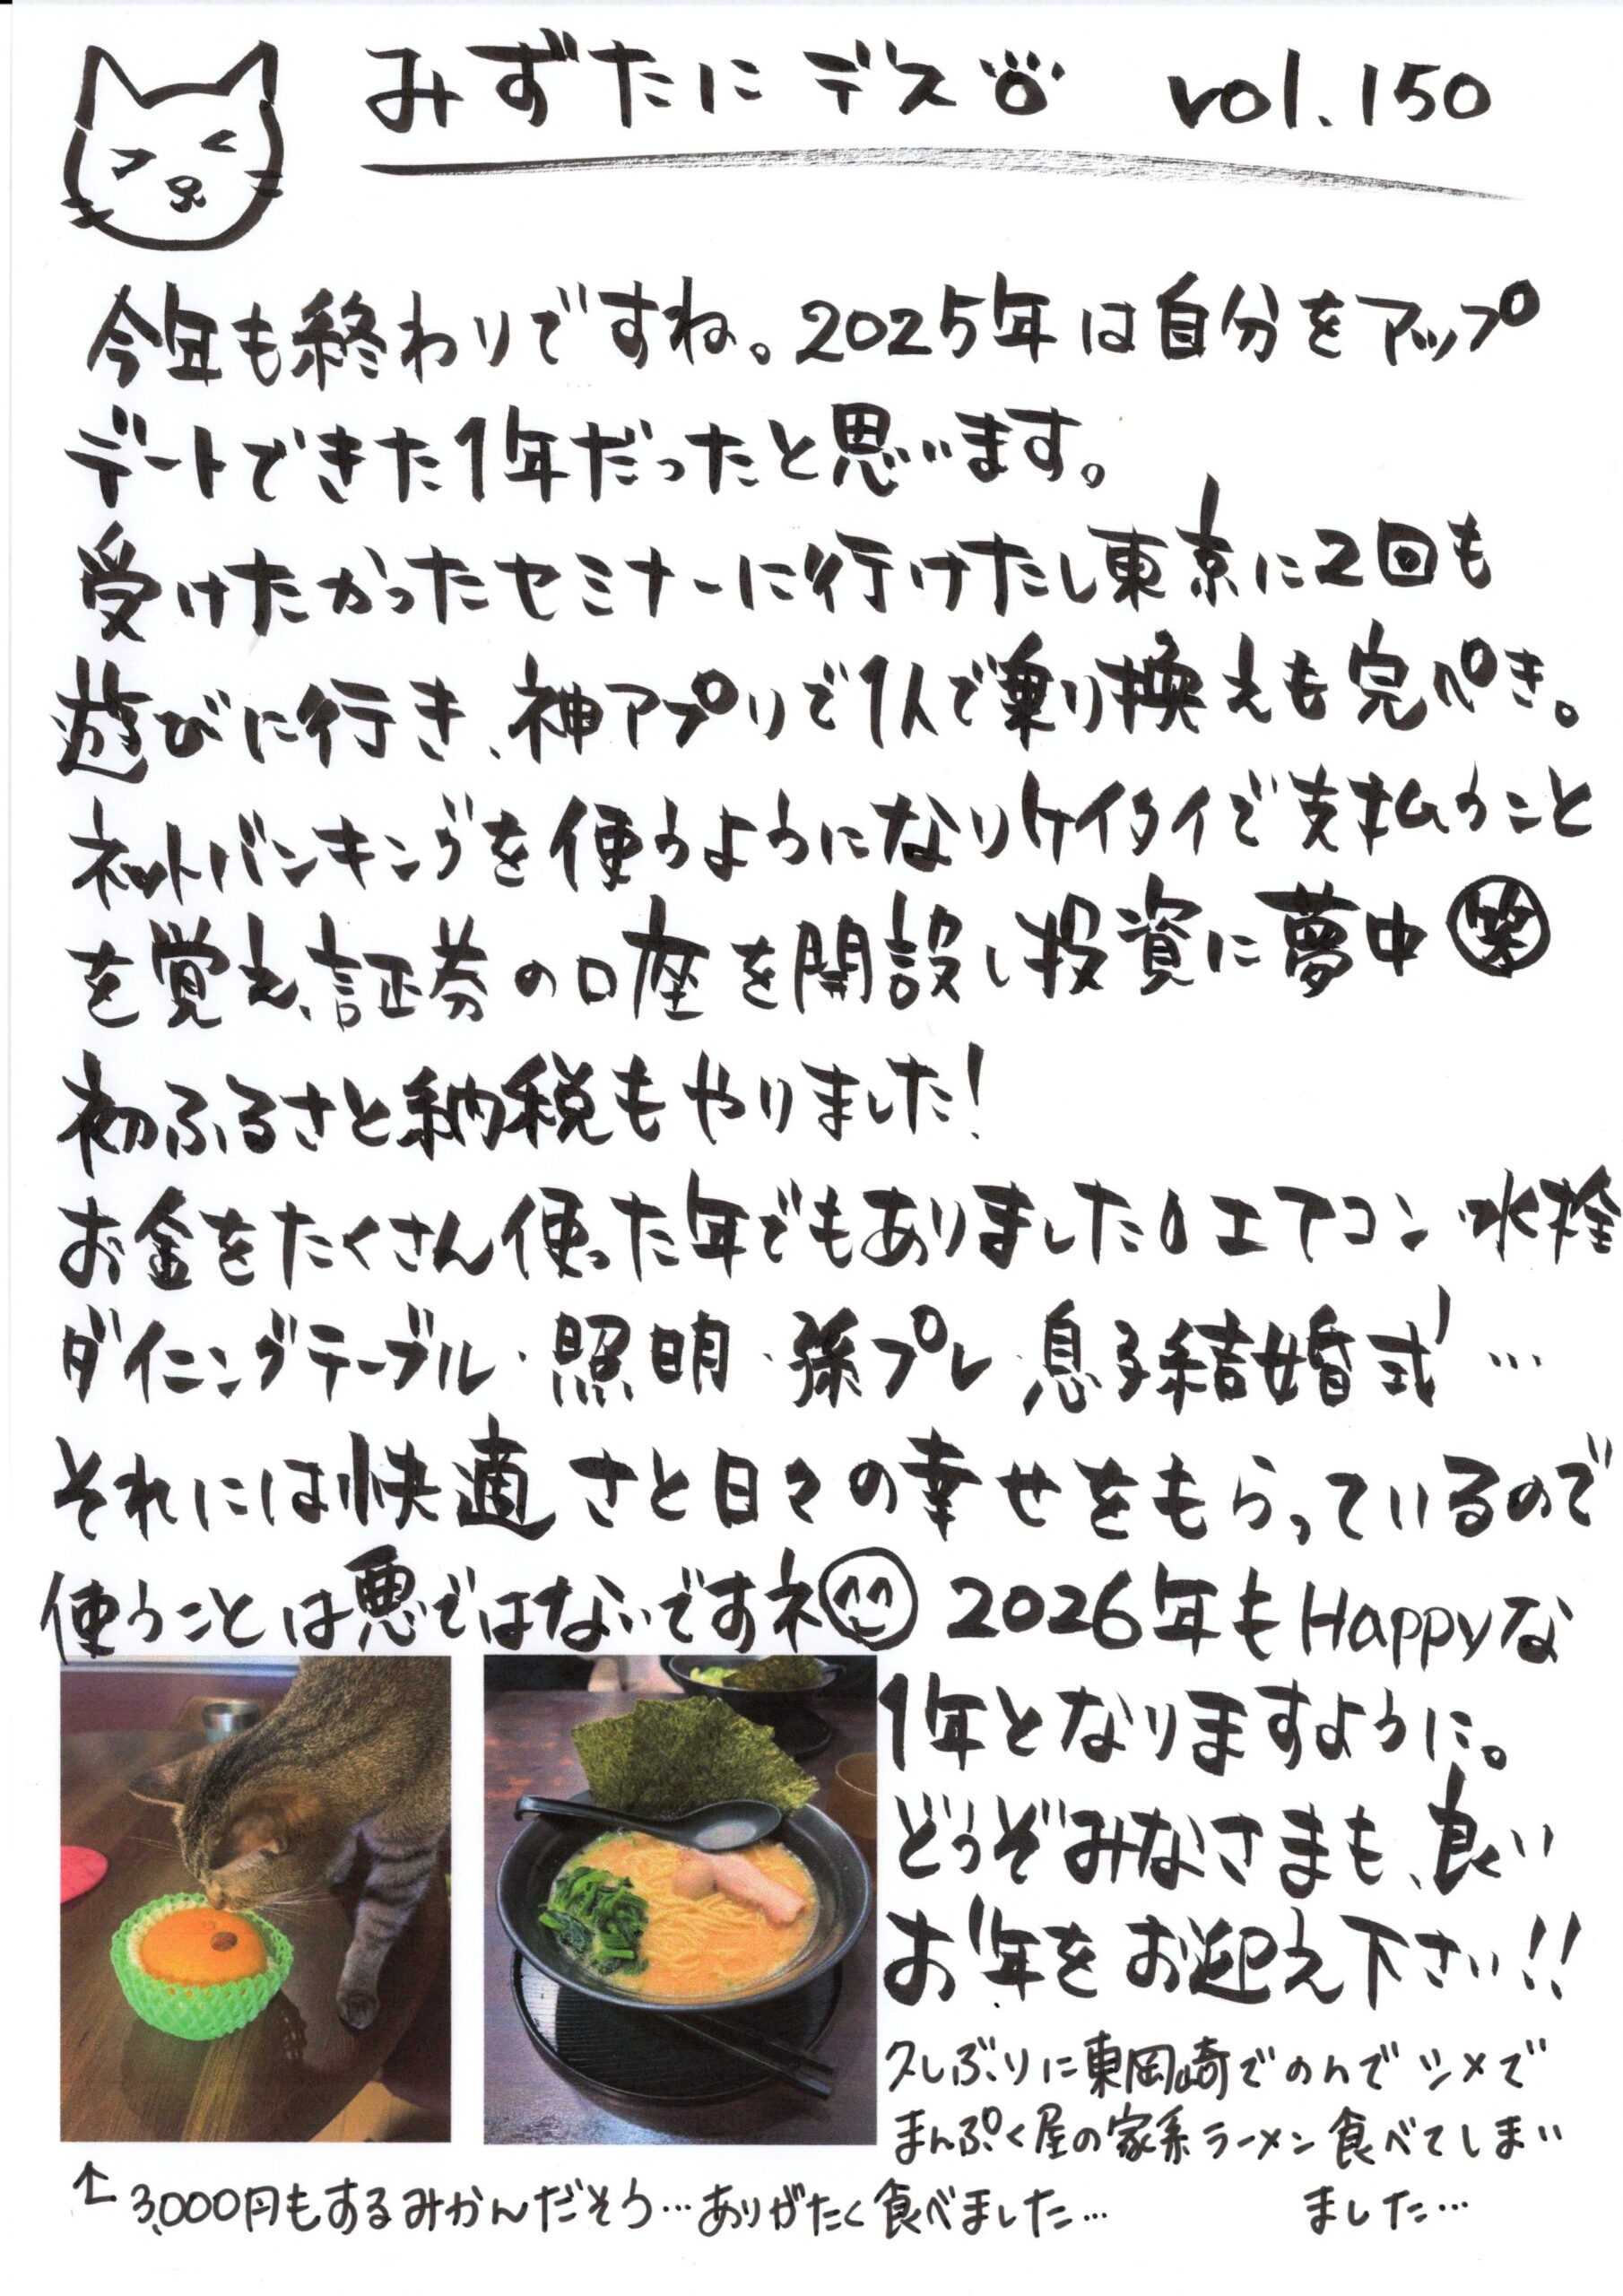 みずたにデス vol.150
今年も終わりですね。2025年は自分をアップ
デートできた1年だったと思います。
受けたかったセミナーに行けたし東京に2回も
遊びに行き、神アプリで1人で乗り換えも完ぺき。
ネットバンキングを使うようになりケイタイで支払うこと
を覚え、証券の口座を開設し投資に夢中㊤笑
初ふるさと納税もやりました!
お金をたくさん使った年でもありました。エアコン・水栓
ダイニングテーブル・照明・孫プレ・息子結婚式…
それには快適さと日々の幸せをもらっているので
使うことは悪ではないですネ 2026年もHappyな
1年となりますように。
どうぞみなさまも、良い
お年をお迎え下さい!!
久しぶりに東岡崎でのんでシメで
まんぷく屋の家系ラーメン食べてしまい
ました…
↑3,000円もするみかんだそう…ありがたく食べました…